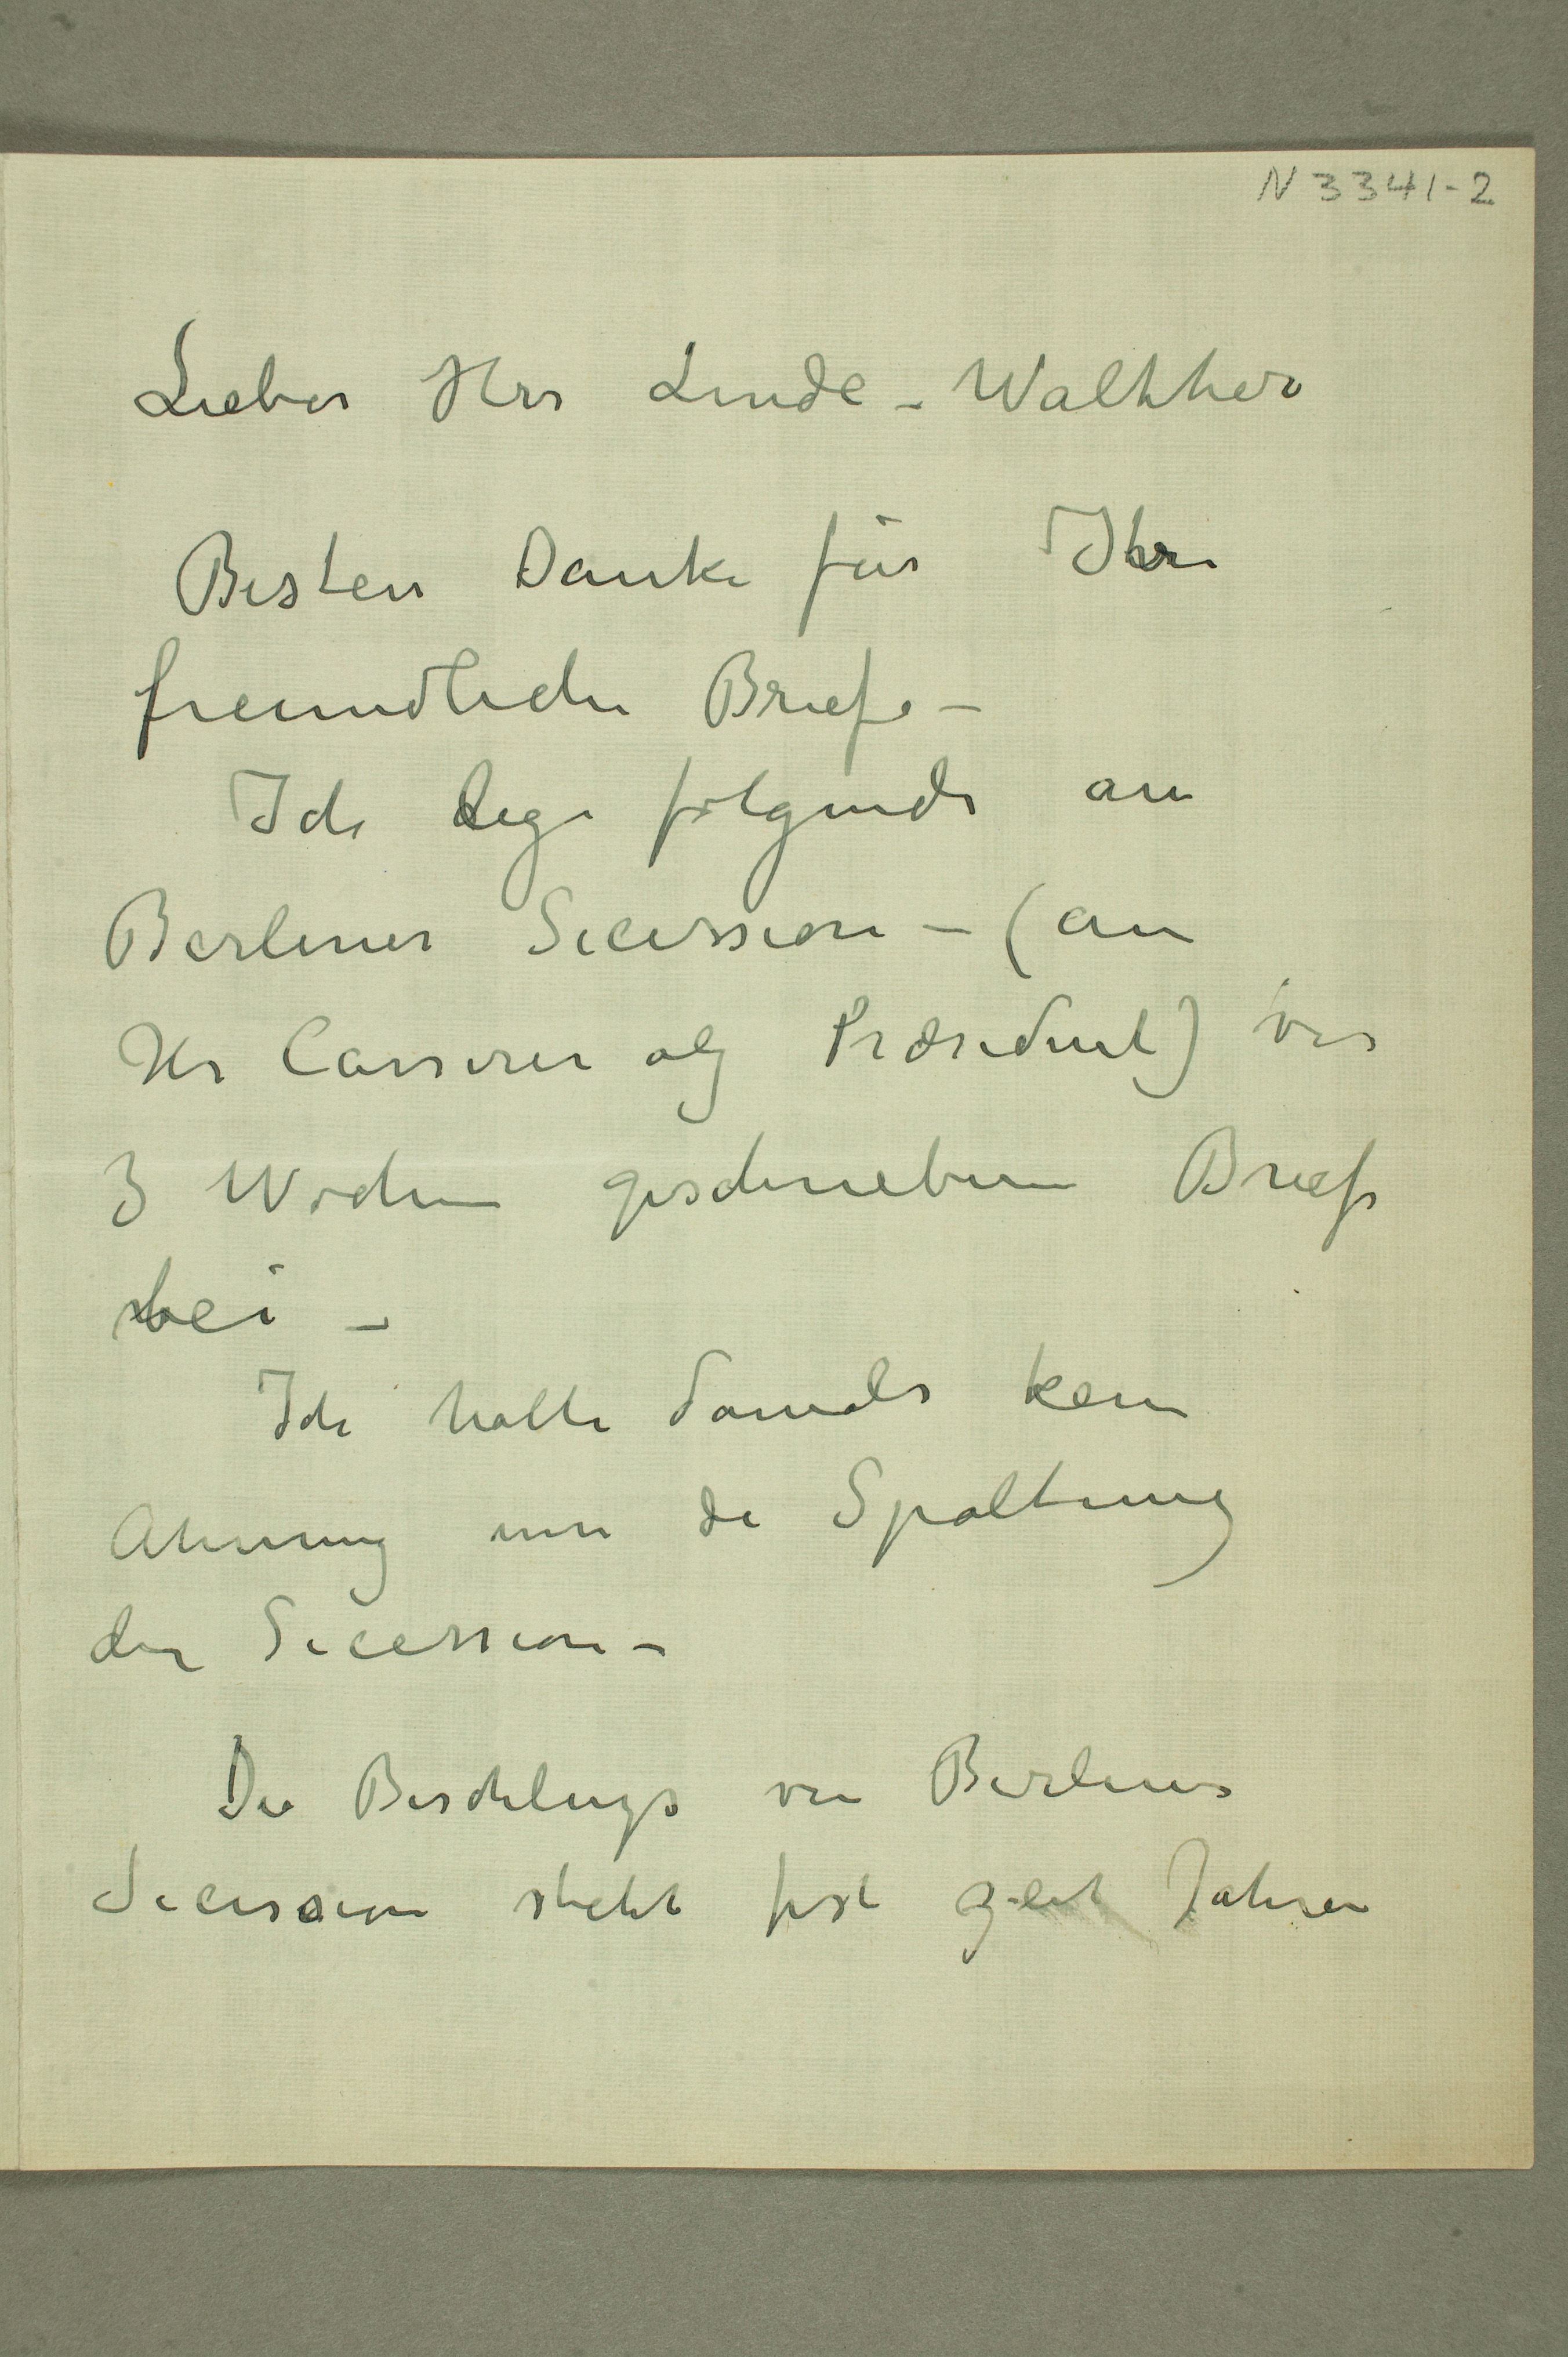 N 3341-2
Lieber Herr Linde-Walther
Besten Danke für Ihre
freundliche Brefe –
Ich lege folgende an
Berliner Secession – (an
Hr Cassirer als Præsident) vor
3 Wochen geschriebenen Brefe
bei –
Ich hatte damals kein
Ahnung um die Spaltung
der Secession –
Die Beschlugs von Berliner
Secession steht fest zeit Jahren